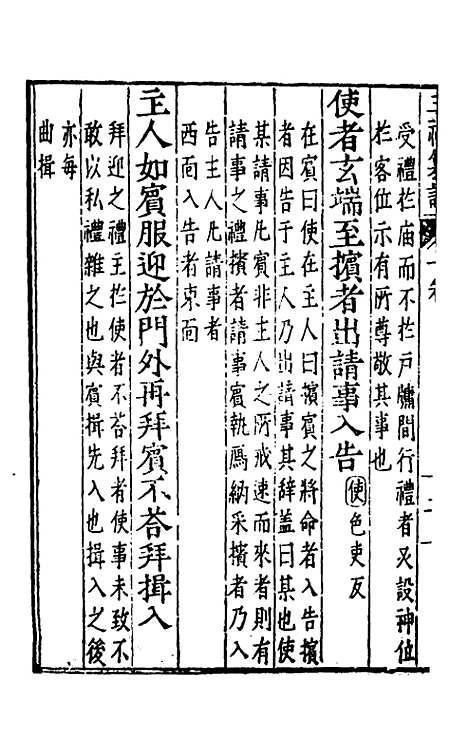 受禮於庙而不於戸牗間行禮者又設神位
於客位示有所尊敬其事也
使者玄端至擯者出請事入告 使色吏反
在賓曰使在主人曰擯賓之將命者入告擯
者因告于主人乃出請事其辞盖曰某也使
某請事凡賓非主人之所戒速而來者則有
請事之禮擯者請事賓執鴈納采擯者乃入
告主人凡請事者
西面入告者東面
主人如賓服迎於門外再拜賓不荅拜揖入
拜迎之禮主於使者不荅拜者使事未致不
敢以私禮雜之也與賓揖先入也揖入之後
亦每
曲揖